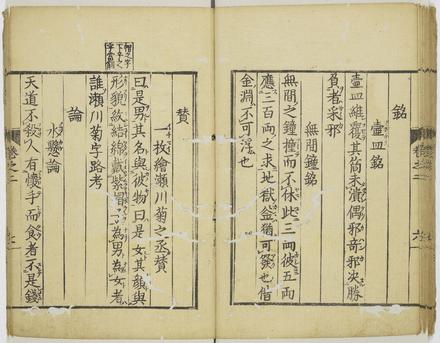 銘
壺皿銘
壺皿維覆其筒未潰偶邪奇邪决勝
負者采邪
無間鐘銘
無間之鐘撞而不休此三両彼五両
應三百両之求地獄盆猶可發也借
金淵不可浮也
賛
一枚繪瀬川菊之丞賛
曰是男其名與彼物曰是女其顔與
形貌紋結綿戴紫帽子為男為女者
誰瀬川菊字路考
論
水懸論
天道不殺人有懐手而食者不是錢